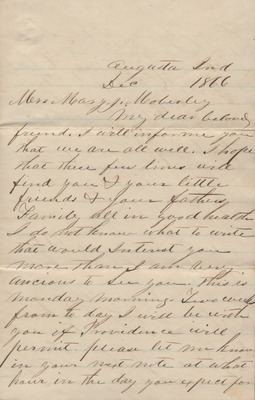 Augusta Ind
Dec 1866
Mrs. Mary J. Mobesley
My dear beloved
friend. I will inform you
that we are all well. I hope
that these few lines will
find you & your little
friends & your fathers
Family all in good health
I do not know what to write
that would Intrust you
more than I am very
ancious to see you. this is
monday morning. Two weeks
from to day I will be with
you if Providence will
permit. please let me know
in your next note at what
hour in the day you expect for